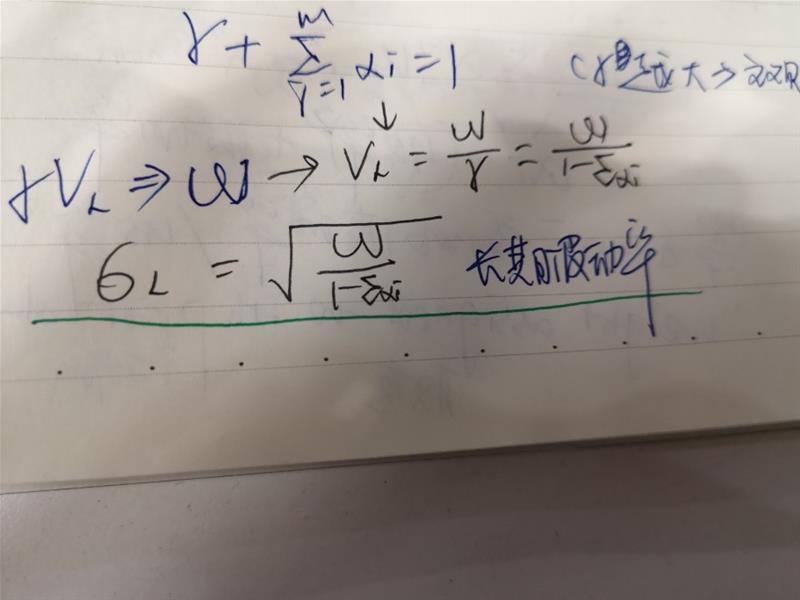 γ + Σ_{i=1}^{m} αi = 1 (γ越大→
↓
γV_L ⇒ ω → V_L = ω/γ = ω/(1-Σαi)
σ_L = √(ω/(1-Σαi)) 长期波动率